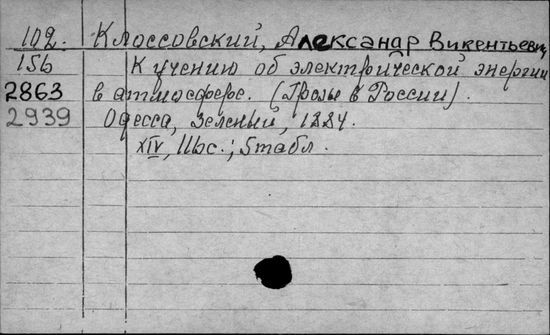 102. Клоссовский, Александр Викентьевич
156 К учению об электрической энергии
2863 в атмосфере. (Грозы в России).
2939 Одесса, Зеленый, 1884.
XIV, 116с.; 5табл.